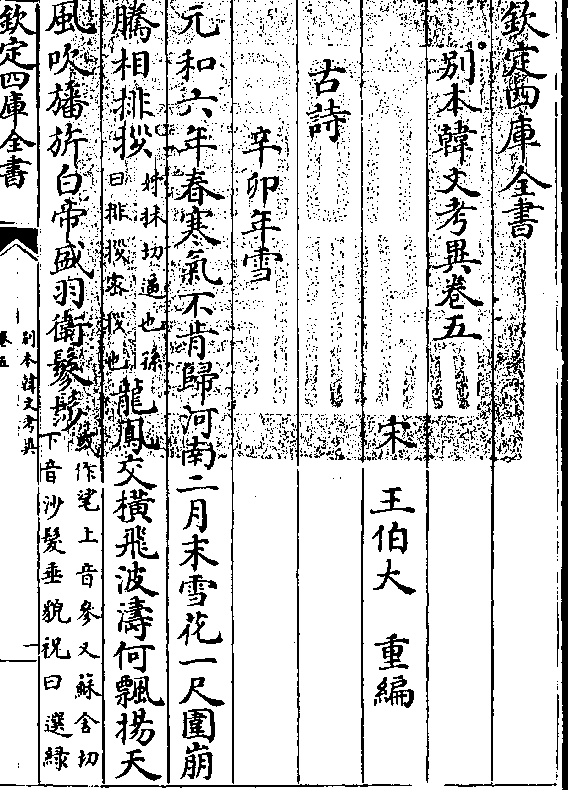 欽定四庫全書
别本韓文考異卷五
宋 王伯大 重編
古詩
辛卯年雪
元和六年春寒氣不肯歸河南二月末雪花一尺圍崩
騰相排拶姊抹切逼也孫曰排拶密拶也龍鳳交橫飛波濤何飄揚天
風吹旛旂白帝盛羽衛鬖髿或作上音參又蘇含切下音沙髮垂貌祝曰選緑
欽定四庫全書
别本韓文考異
卷五
一